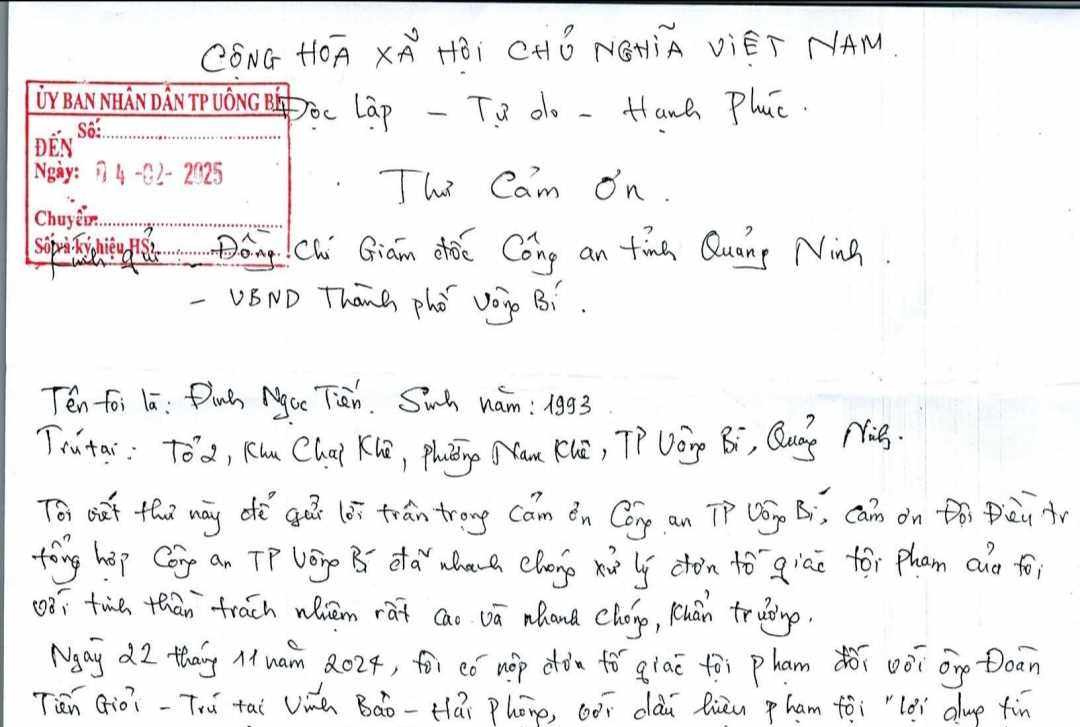 CỘNG HÒA XÃ HỘI CHỦ NGHĨA VIỆT NAM.
Độc Lập - Tự do - Hạnh Phúc.
ỦY BAN NHÂN DÂN TP UÔNG BÍ
Số:
ĐẾN
Ngày: 04 -02- 2025
Chuyển:
Số và ký hiệu HS:
Thư Cảm ơn.
Kính gửi - Đồng Chí Giám đốc Công an tỉnh Quảng Ninh.
- UBND Thành phố Uông Bí.
Tên tôi là: Đinh Ngọc Tiến. Sinh năm: 1993
Trú tại: Tổ 2, Khu Chạp Khê, phường Nam Khê, TP Uông Bí, Quảng Ninh.
Tôi viết thư này để gửi lời trân trọng cảm ơn Công an TP Uông Bí, cảm ơn Đội Điều tr
tổng hợp Công an TP Uông Bí đã nhanh chóng xử lý đơn tố giác tội phạm của tôi
với tinh thần trách nhiệm rất cao và nhanh chóng, khẩn trương.
Ngày 22 tháng 11 năm 2024, tôi có nộp đơn tố giác tội phạm đối với ông Đoàn
Tiến Giỏi - Trú tại Vĩnh Bảo - Hải Phòng, với dấu hiệu phạm tội "lợi dụng tín